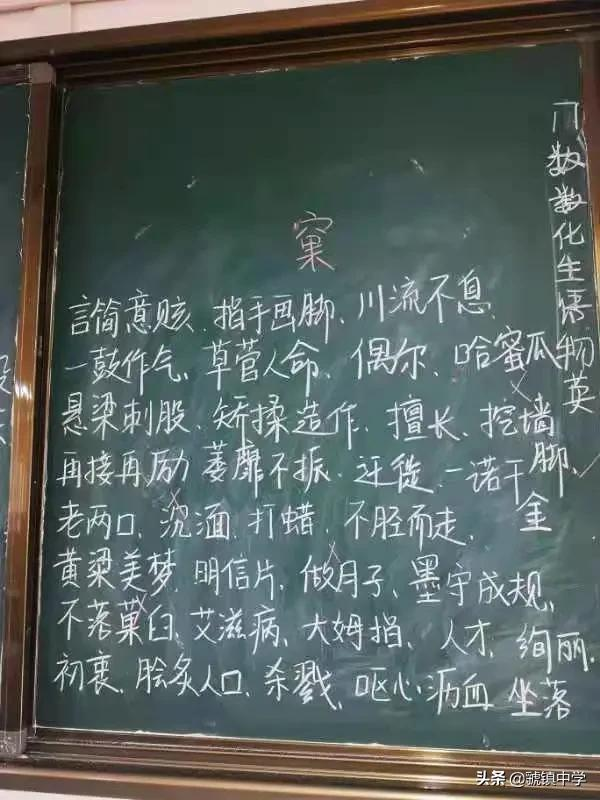 窠
言简意赅、指手画脚、川流不息、
一鼓作气、草菅人命、偶尔、哈蜜瓜
悬梁刺股、矫揉造作、擅长、挖墙脚、
再接再励 萎靡不振、迁徙、一诺千金
老两口、沉湎、打蜡、不胫而走、
黄粱美梦、明信片、做月子、墨守成规、
不落菓臼、艾滋病、大姆指、人才、绚丽、
初衷、脍炙人口、杀戮、呕心沥血 坐落
数数化生语物英
头条 @虢镇中学